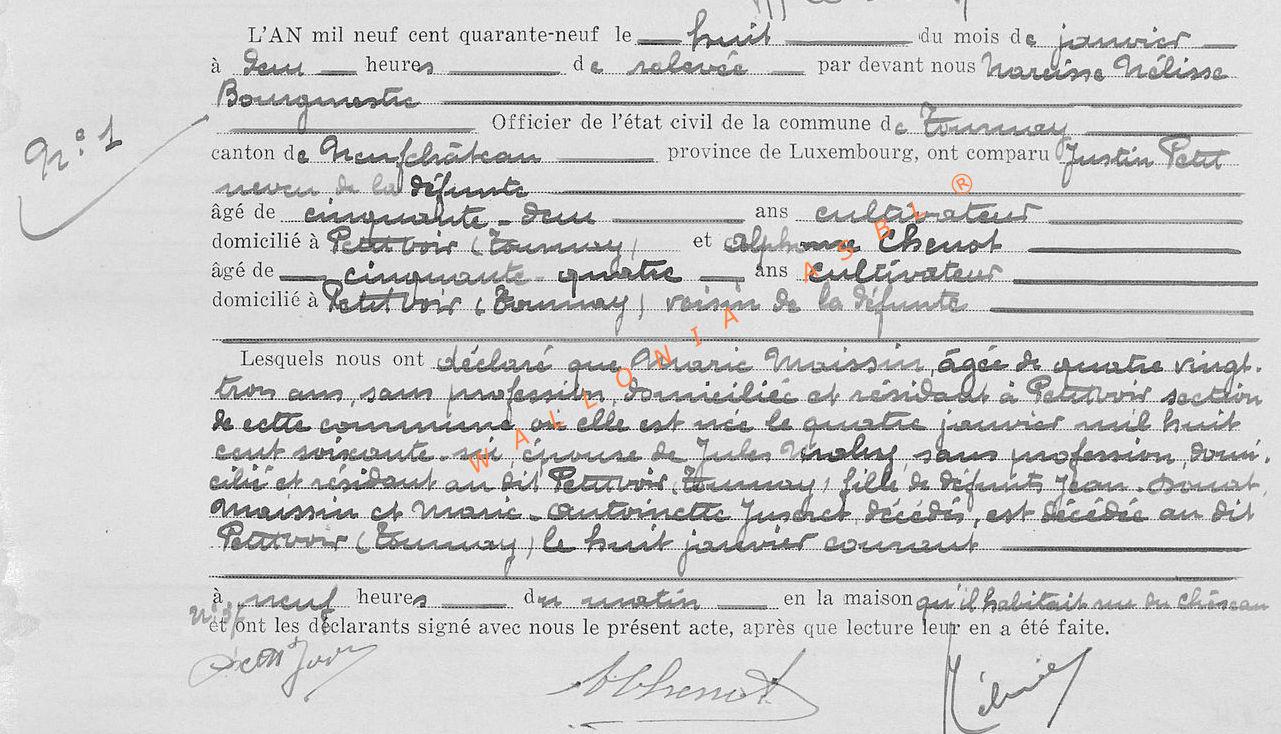 L'AN mil neuf cent quarante-neuf le huit du mois de janvier
à deux heures de relevée par devant nous Narcisse Nélisse
Bourgmestre
N° 1
Officier de l'état civil de la commune de Tournay
canton de Neufchâteau province de Luxembourg, ont comparu Justin Petit
neveu de la défunte
âgé de cinquante-deux ans cultivateur
domicilié à Petitvoir (Tournay) et Alphonse Chenot
âgé de cinquante quatre ans cultivateur
domicilié à Petitvoir (Tournay) voisin de la défunte
Lesquels nous ont déclaré que Marie Maissin, âgée de quatre vingt-
trois ans, sans profession, domiciliée et résidant à Petitvoir section
de cette commune où elle est née le quatre janvier mil huit
cent soixante-six, épouse de Jules, sans profession, domi-
cilié et résidant au dit Petitvoir (Tournay) fille de défunts Jean-Donat
Maissin et Marie-Antoinette Juseret, décédés, est décédée au dit
Petitvoir (Tournay) le huit janvier courant
à neuf heures du matin en la maison qu'il habitait rue du Château
et ont les déclarants signé avec nous le présent acte, après que lecture leur en a été faite.
AChenot
Nélisse
WALLONIA ASBL ®